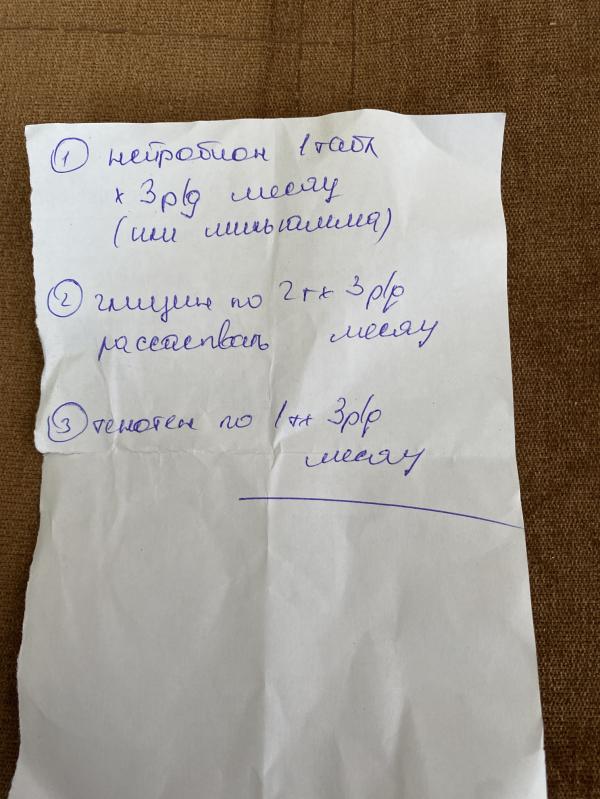 ① нейробион 1 табл
х 3 р/д месяц
(или мильгамма)
② глицин по 2 т х 3 р/д
рассасывать месяц
③ тенотен по 1 т х 3 р/д
месяц